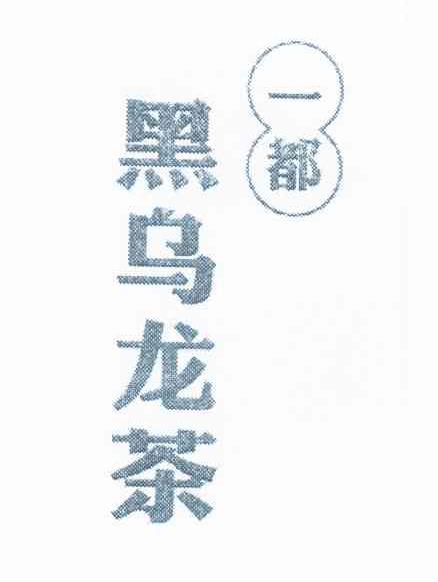 一都
黑乌龙茶